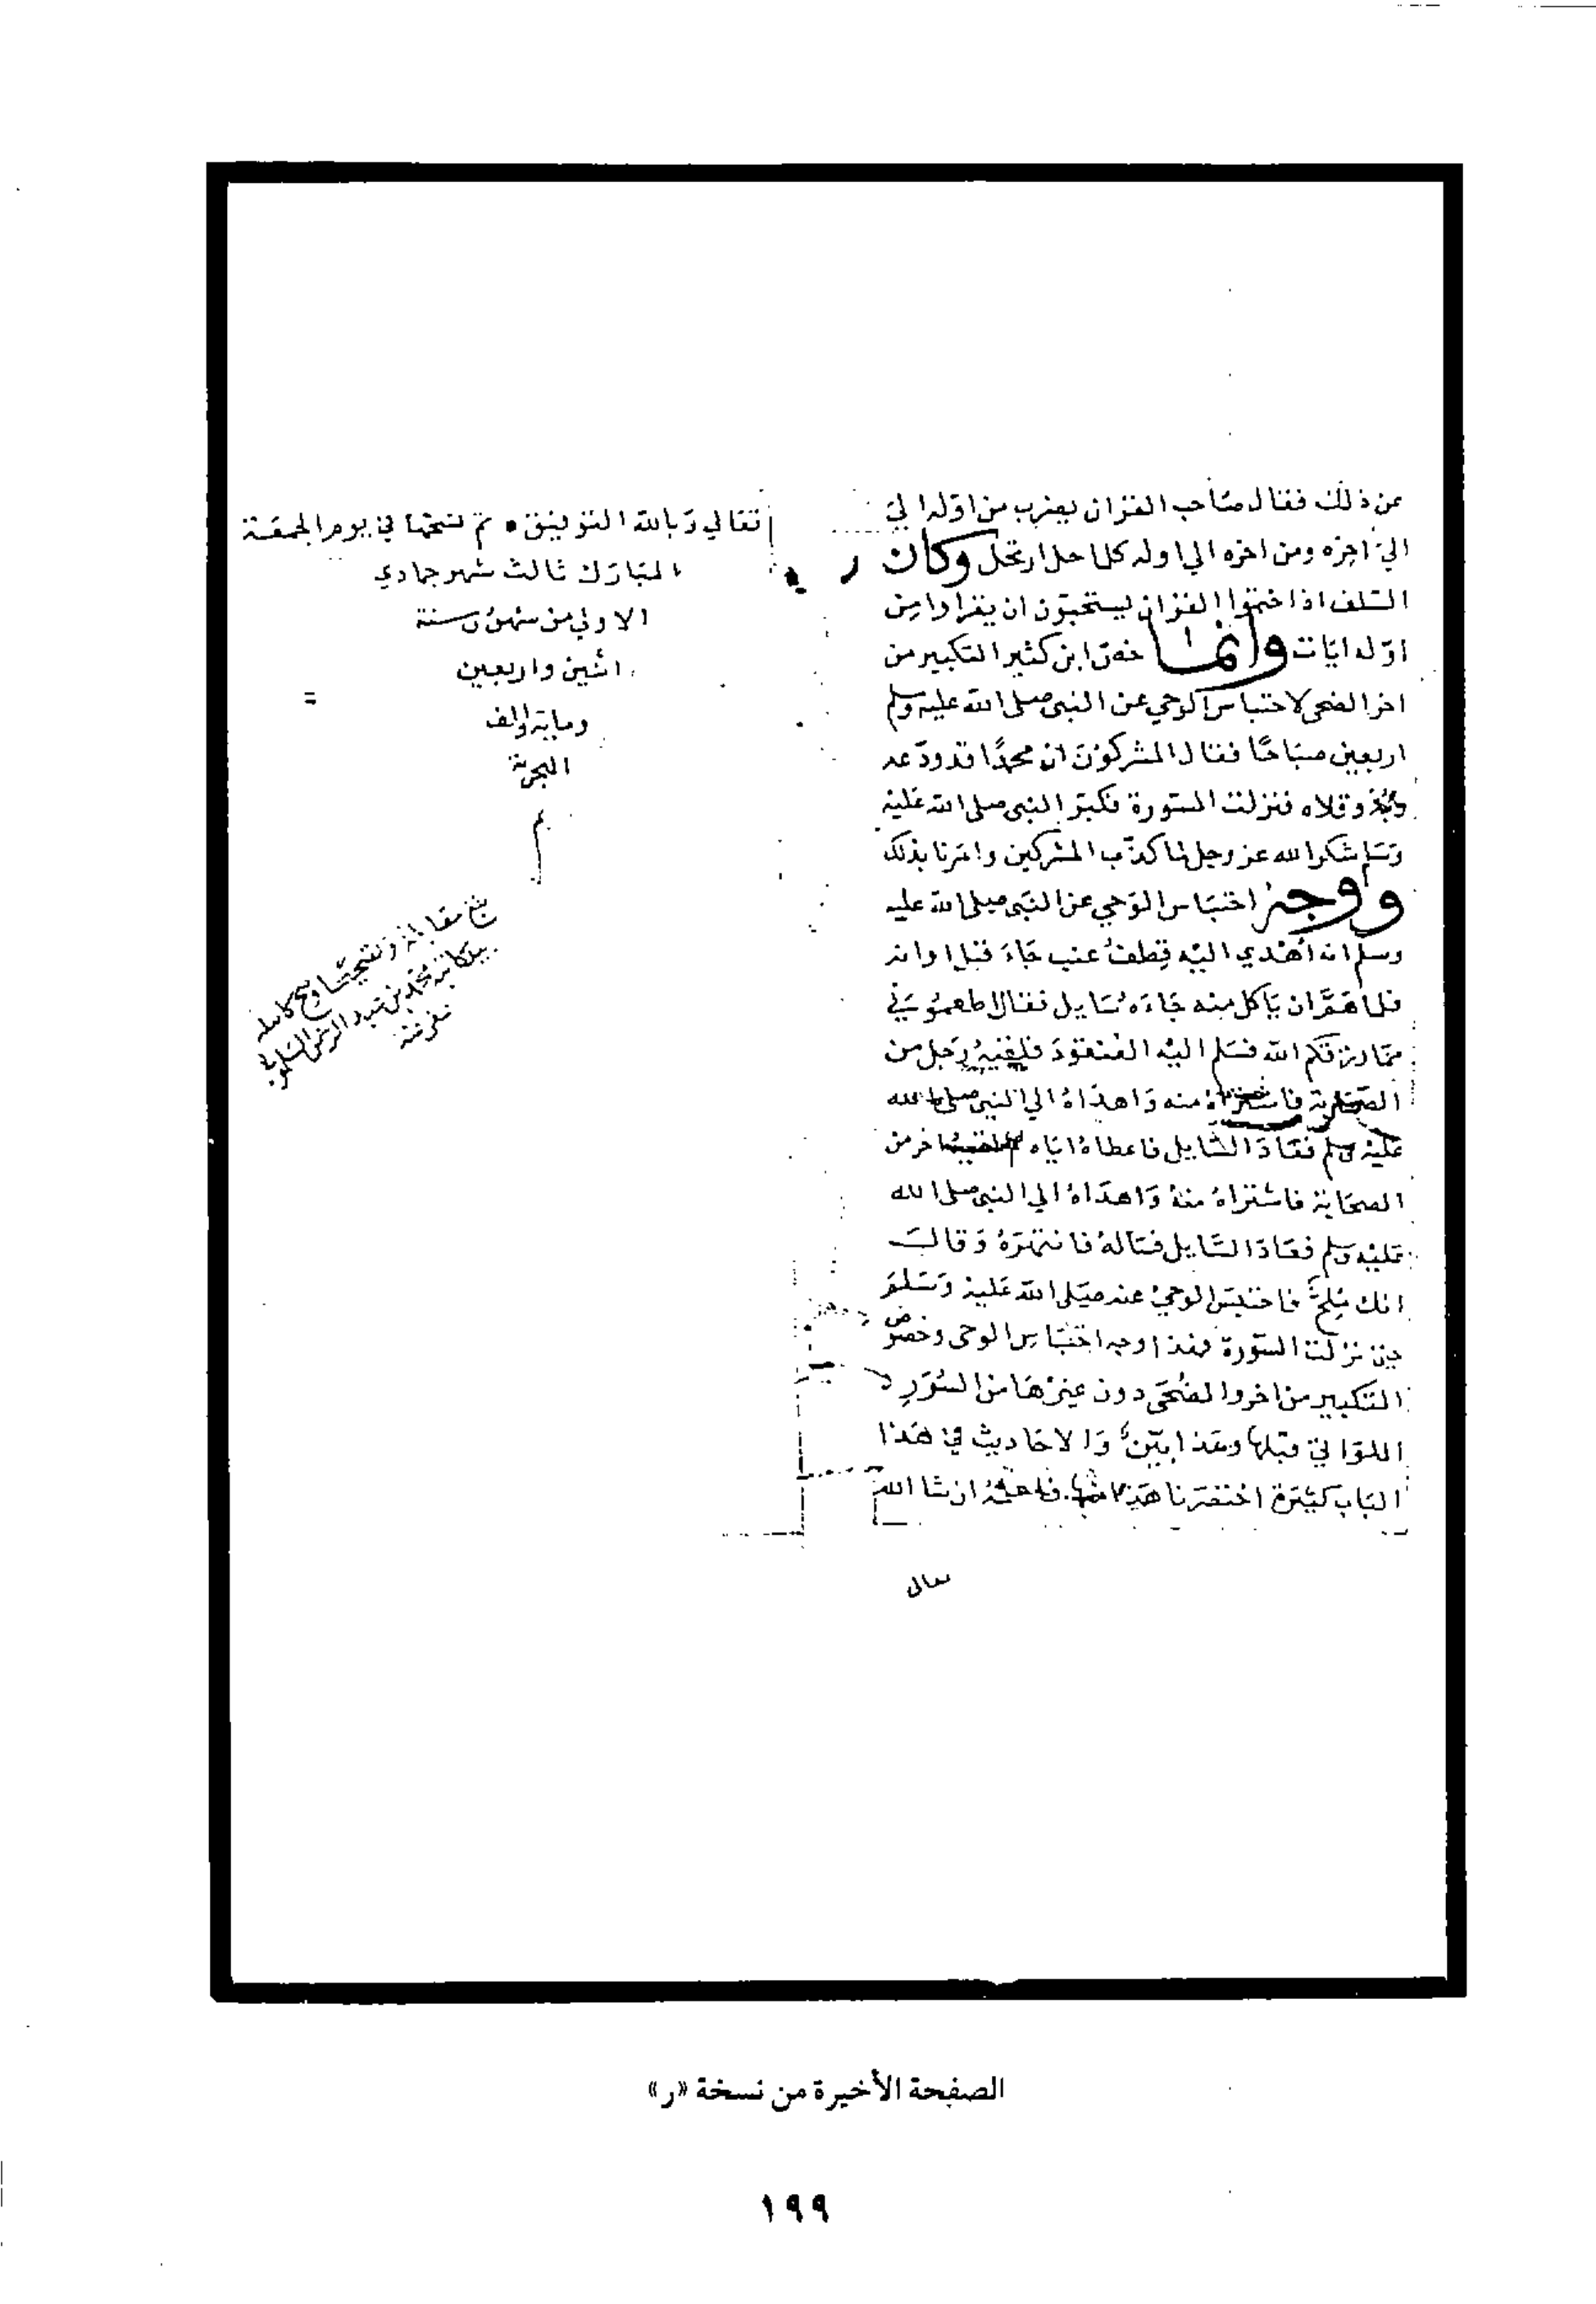 عن ذلك فقال صاحب القران يضرب من اوله الي
الي اخره ومن اخره الي اوله كلما حل ارتحل وكان
السلف اذا ختموا القران يستحبون ان يقراوا من
اوله ايات وانما خص ابن كثير التكبير من
اخر الضحى لاحتباس الوحي عن النبى صلى الله عليه وسلم
اربعين صباحًا فقال المشركون ان محمدًا قد ودعه
وقلاه فنزلت السورة فكبر النبى صلى الله عليه
وسلم شكرا لله عز وجل لما كذب المشركين وامرنا بذلك
ووجه احتباس الوحي عن النبى صلى الله عليه
وسلم انه أهدي اليه قطف عنب جاء قبل اوانه
فلما همَّ ان ياكل منه جاءه سايل فقال اطعموني
مما رزقكم الله فسلم اليه العنقود فلقيه رجل من
الصحابة فاشتراه منه واهداه الي النبى صلى الله
عليه وسلم فعاد السايل فاعطاه اياه اخر من
الصحابة فاشتراه منه واهداه الي النبى صلى الله
عليه وسلم فعاد السايل فساله فانتهره وقال
انك ملحٌ فاحتبس الوحي عنه صلى الله عليه وسلم
حين نزلت السورة فهذا وجه احتباس الوحى وخصوص
التكبير من اخر والضحى دون غيرها من السور
اللواتي قبلها وهذا بيّن والاحاديث في هذا
الباب كثيرة اختصرنا هذا منها ان شا الله
تعالى
تعالي وبالله التوفيق • تم نسخها في يوم الجمعة
المبارك ثالث شهر جمادي
الاولي من شهور سنة
اثنين واربعين
وماية والف
الهجرية
م
بلغ مقابلة وتصحيحا كاتبه
محمد بن عبد الرحمن
الصفحة الأخيرة من نسخة «ر»
١٩٩